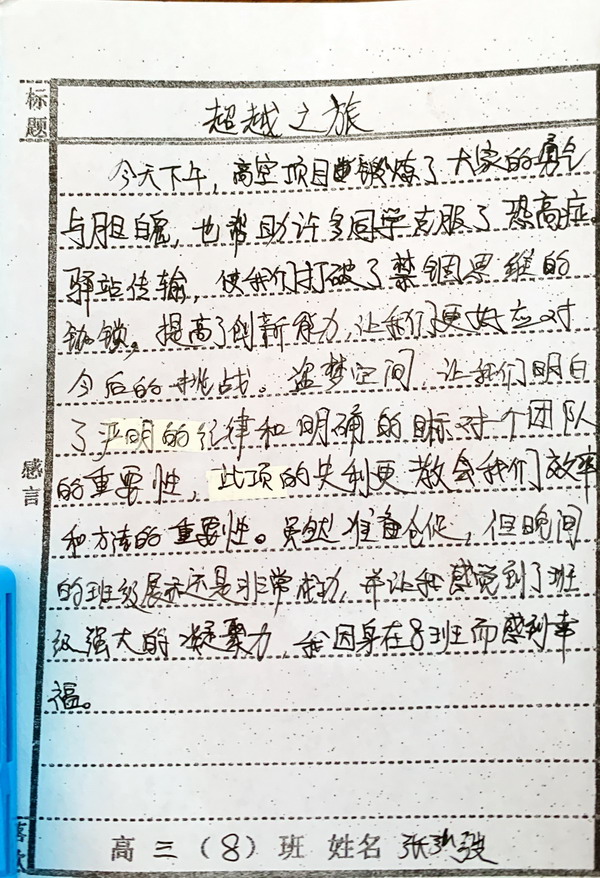 标题
超越之旅
今天下午，高空项目锻炼了大家的勇气
与胆魄，也帮助许多同学克服了恐高症。
驿站传输，使我们打破了禁锢思维的
枷锁。提高了创新能力，让我们更好应对
今后的挑战。盗梦空间，让我们明白
了严明的纪律和明确的目标对个团队
的重要性，此项的失利更教会我们效率
和方法的重要性。虽然准备仓促，但晚间
的班级展示还是非常成功，并让我感觉到了班
级强大的凝聚力，我因身在8班而感到幸
福。
感言
高三（8）班 姓名 张